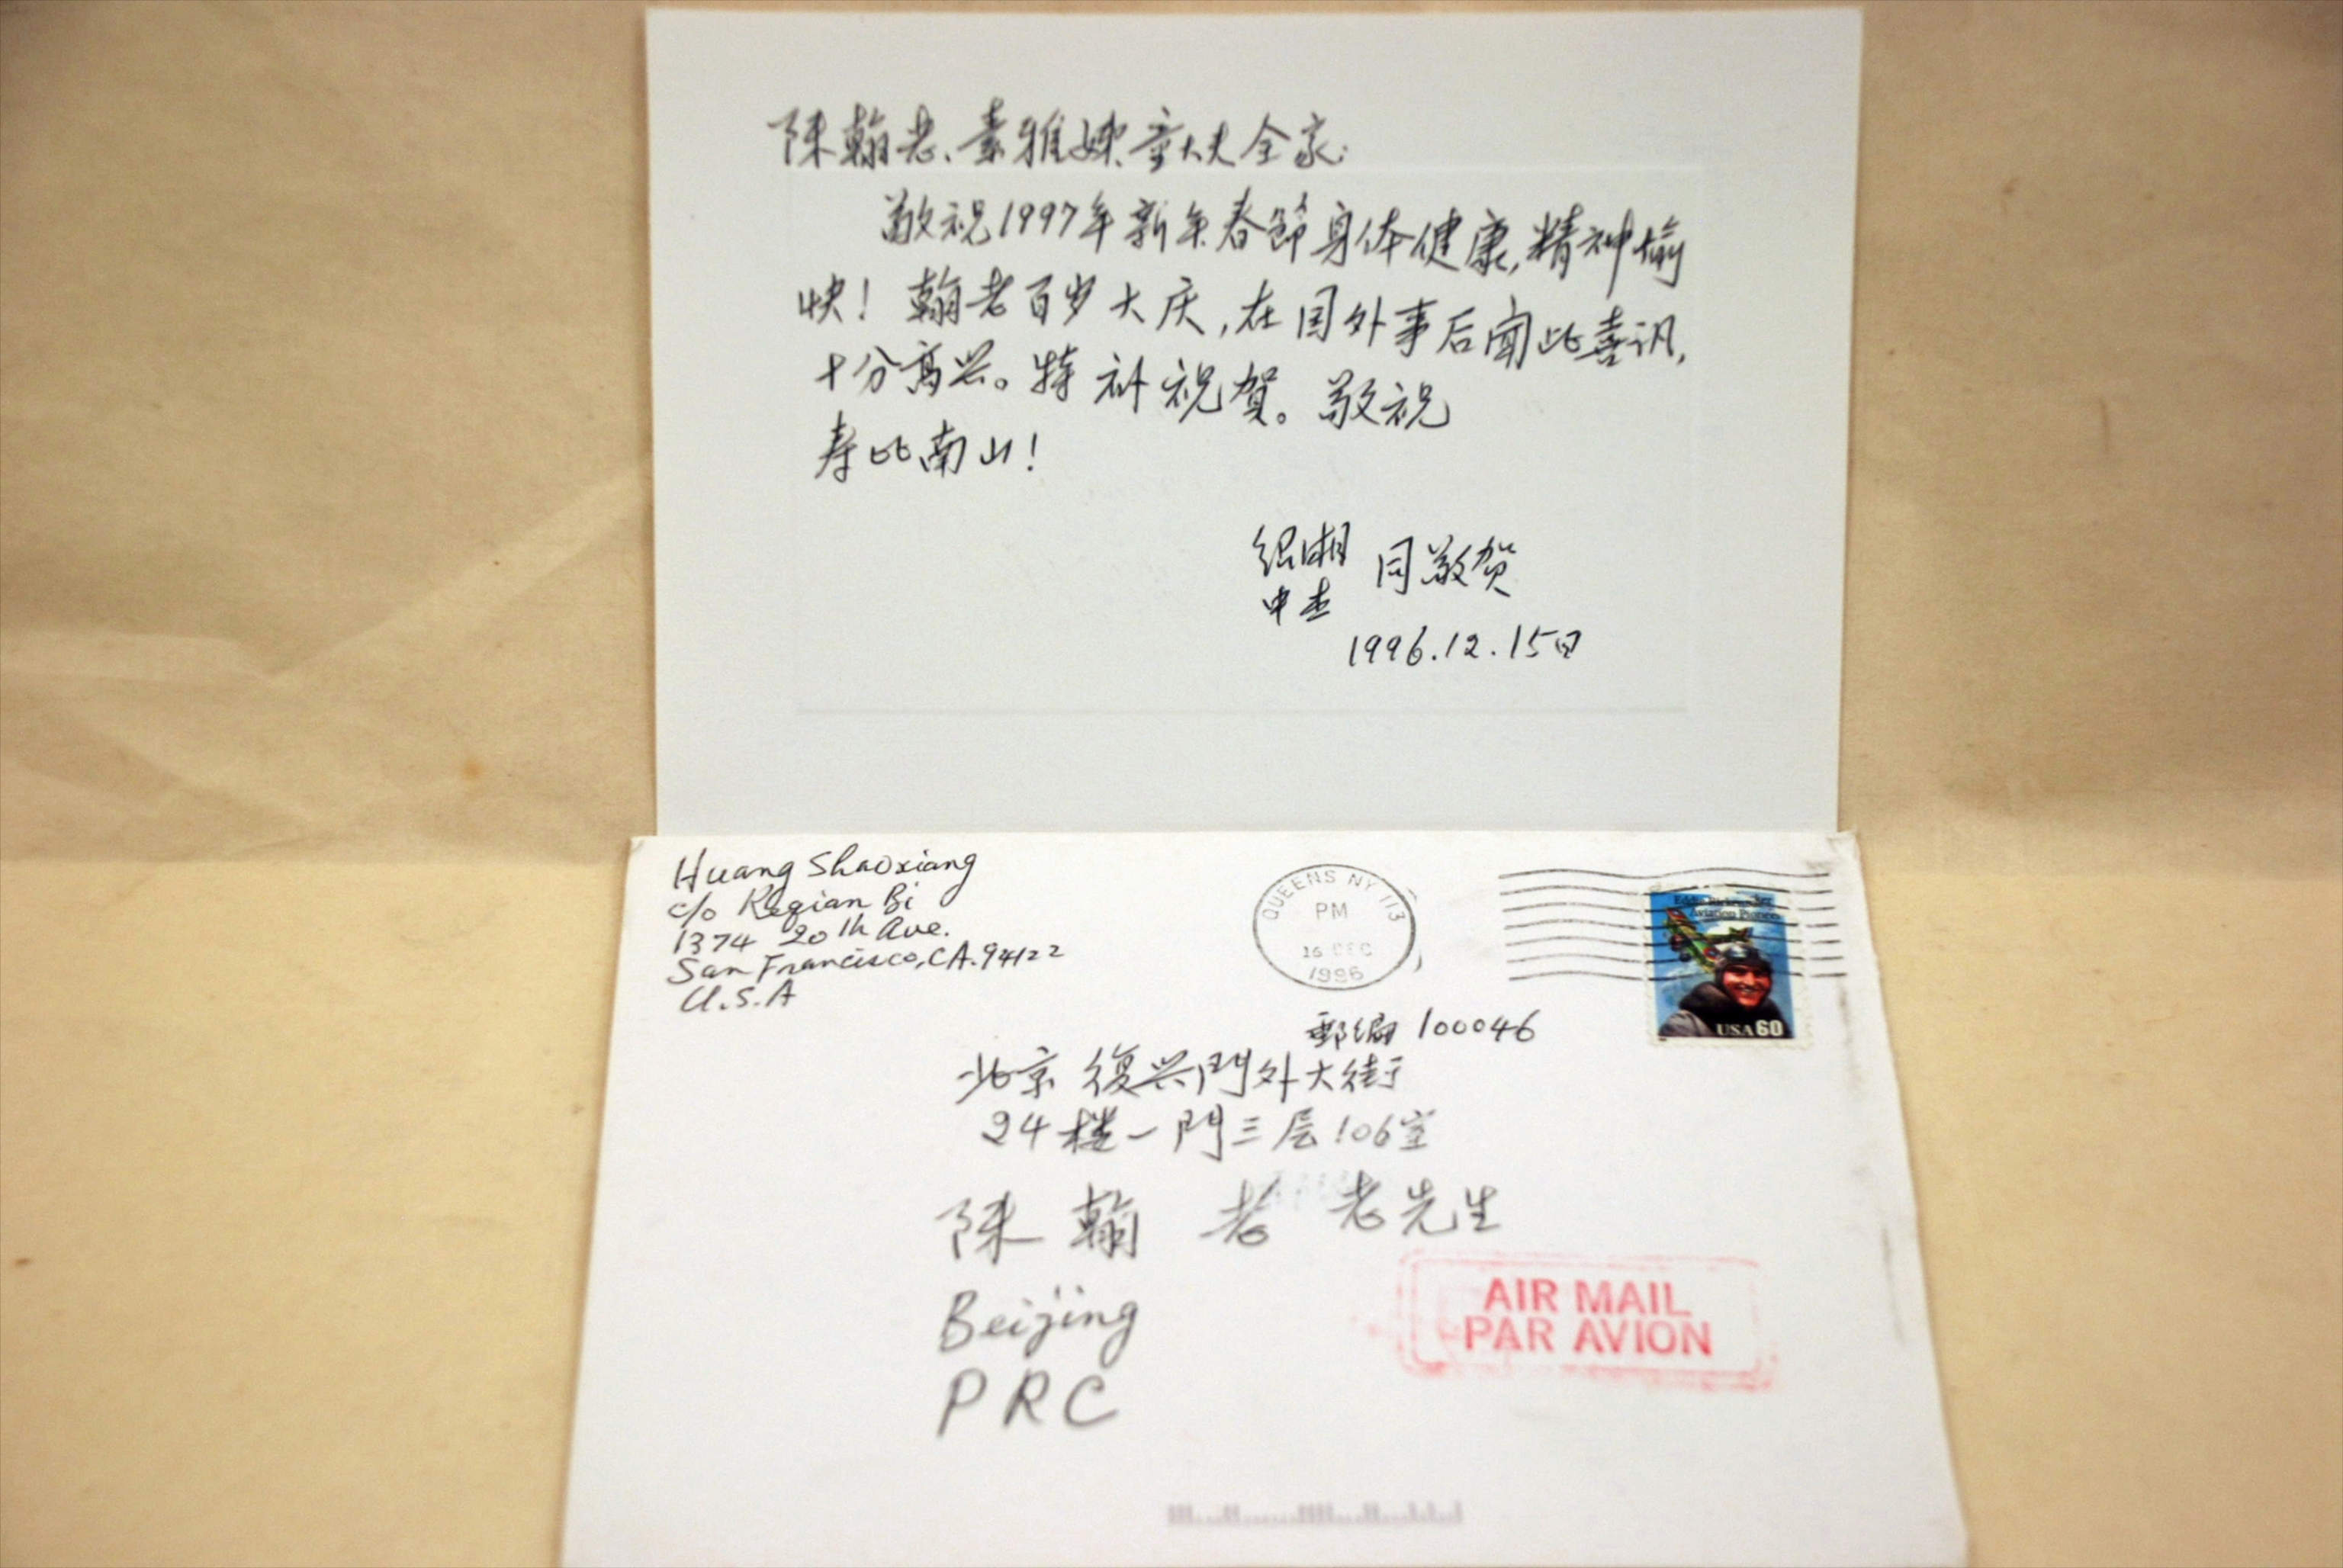 陳翰老、素雅姊、童大夫全家:
敬祝1997年新年春節身体健康,精神愉
快！翰老百岁大庆,在国外事后闻此喜讯,
十分高兴。特补祝贺。敬祝
寿比南山！
绍湘
中杰
同敬贺
1996.12.15日
Huang Shaoxiang
c/o Reqian Bi
1374 20th Ave.
San Francisco, CA. 94122
U.S.A
QUEENS NY 113
PM
16 DEC
1996
Eddie Rickenbacker
Aviation Pioneer
USA 60
郵编 100046
北京 復兴門外大街
24楼一門三层106室
陳 翰 老 老先生
Beijing
PRC
AIR MAIL
PAR AVION